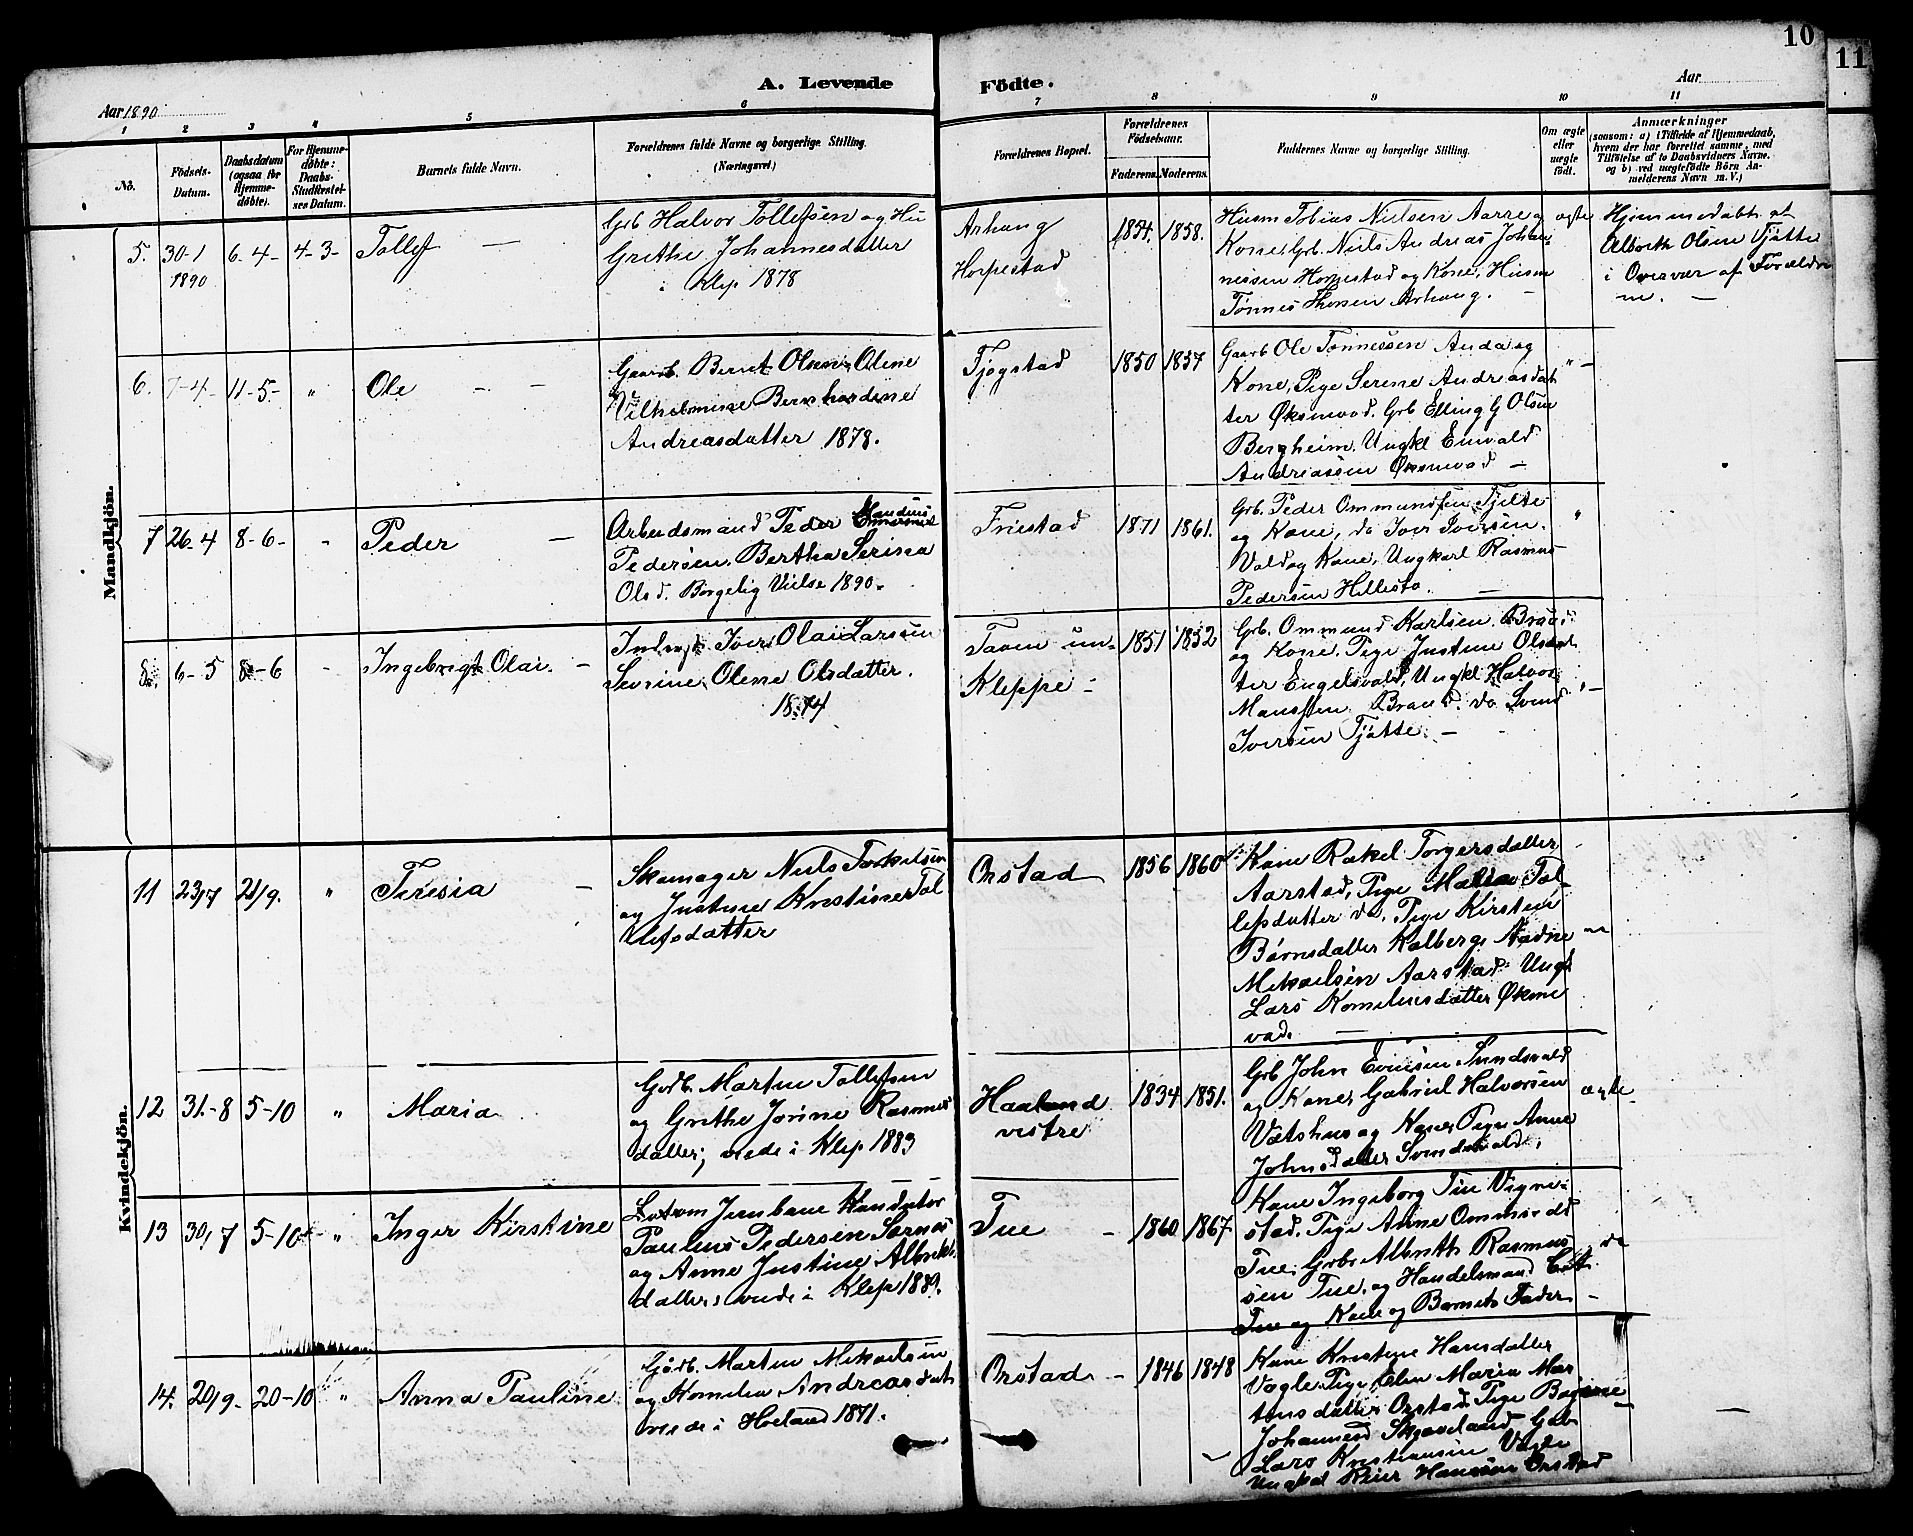 10
11
A. Levende
Födte.
Aar 1890
Aar
1 2 3 4 5 6 7 8 9 10 11
No.
Födsels-
Datum.
Daabsdatum
(ogsaa for
Hjemme-
døbte).
For Hjemme-
døbte:
Daabs-
Stadfæstel-
ses Datum.
Barnets fulde Navn.
Forældrenes fulde Navne og borgerlige Stilling.
(Næringsvei.)
Forældrenes Bopæl.
Forældrenes
Födselsaar.
Faderens. Moderens.
Faddernes Navne og borgerlige Stilling.
Om ægte
eller
uægte
født.
Anmærkninger
(saasom: a) i Tilfælde af Hjemmedaab,
hvem der har forrettet samme, med
Tilföielse af to Daabsvidners Navne.
og b) ved uægtefödte Börn An-
melderens Navn m. V.)
Mandkjön.
5. 30-1
1890
6-4- 4-3- Tollef —
Grb Halvor Tollefsen og Hu
Grethe Johannesdatter
i Klep 1878
Arhaug
Horpestad
1854. 1858.
Husm Tobias Nielsen Aarre og
Kone, Grb. Niels Andreas Johan-
nessen Horpestad og Kone, Husm
Tønnes Thorsen Arhaug. —
ægte
Hjemmedøbt at
Albreth Olsen Tjøtte
i Overvær af Forældre
ne. —
6. 7-4- 11-5- " Ole - -
Gaardb. Bernt Olsen, Olene
Vilhelmine Bernhardine
Andreasdatter 1878.
Tjøgstad
1850 1857
Gaarb Ole Tønnessen Anda og
Kone, Pige Serene Andreasdat
ter Øksnevad. Grb Elling G Olsen
Bergheim. Ungkl Enevald
Andreassen Øksnevad —
" -
7 26-4 8-6- - Peder —
Arbeidsmand Peder Mandius
Pedersen, Bertha Serina
Olsd. Borgelig Vielse 1890.
Friestad
1871 1861.
Grb. Peder Ommundsen Tjelte
og Kone, do Iver Iversen
Vold og Kone, Ungkarl Rasmus
Pedersen Hillestø. —
"
8. 6-5 8-6 - Ingebrigt Olai. -
Inderst Iver Olai Larssen
Serine Olene Olsdatter.
1874
Kleppe -
1851 1852
Grb. Ommund Karlsen Braud
og Kone, Pige Justine Olsdat
ter Engelsvold, Ungkl Halvor
Braud. do Svend
Iversen Tjøtte. —
" -
Kvindekjön.
11 23/7 21/9. " Teresia —
Skomager Niels Torkelsen
og Justine Kristine Tol
lefsdatter
Orstad
1856 1860
Kone Rakel Torgersdatter
Aarstad, Pige Maria Tol-
lefsdatter do, Pige Kirsten
Børnsdatter Kalberg, Aadne
Mikaelsen Aarstad, Ungk
Lars Korneliusdatter Øksne
vad. —
12 31-8 5-10 " Maria
Grdb. Marten Tollefsen
og Grethe Jorine Rasmus
datter, viede i Klep 1883
Haaland
vistre
1834 1851.
Grb John Evensen Sundsvald
og Kone, Gabriel Halvorsen
Vatshus og Kone, Pige Anne
Johnsdatter Svindsvald.
ægte
13 30/7 5-10 " Inger Kirstine
Jernbane Konduktør
Paulus Pedersen Sørnes
og Anne Justine Albrikts
datter, viede i Klep 1889.
Tue -
1860 1867
Kone Ingeborg Tue Vigre-
stad. Pige Anne Ommunds
Tue. Grb. Albreth Rasmus
sen Tue, og Handelsmand
Tue og Kone og Barnets Fader —
do
14. 20/9. 20-10 " Anna Pauline
Grdb. Marten Mikaelsen
og Kornelia Andreasdat
viede i Høiland 1871.
Orstad -
1846 1848
Kone Kristene Hansdatter
Vagle, Pige Elen Maria Mar
tensdatter Orstad, Pige
Johannesd Skjæveland Grb
Lars Kristiansen Vagle
Ungkl Reier Hansen Orstad